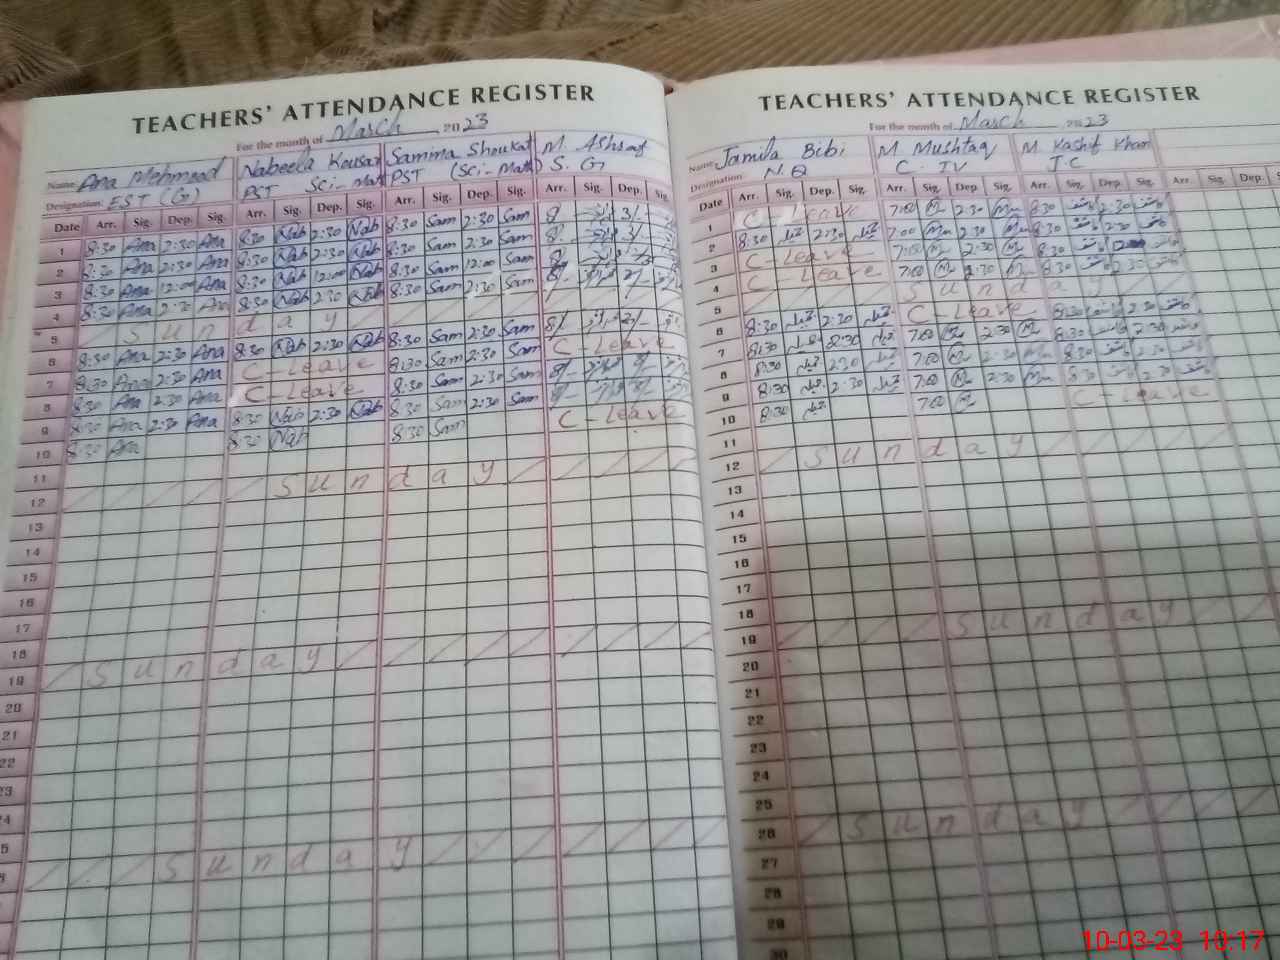 TEACHERS' ATTENDANCE REGISTER
For the month of March 2023
Name Ana Mehmood Nabeela Kousar Samma Shoukat M. Ashraf
Designation EST (G) PST Sci-Math PST (Sci-Math) S. G
Date Arr. Sig. Dep. Sig. Arr. Sig. Dep. Sig. Arr. Sig. Dep. Sig. Arr. Sig. Dep. Sig.
1 8:30 Ana 2:30 Ana 8:30 Nab 2:30 Nab 8:30 Sam 2:30 Sam
2 8:30 Ana 2:30 Ana 8:30 Nab 2:30 Nab 8:30 Sam 2:30 Sam
3 8:30 Ana 12:00 Ana 8:30 Nab 12:00 Nab 8:30 Sam 12:00 Sam
4 8:30 Ana 2:30 Ana 8:30 Nab 2:30 Nab 8:30 Sam 2:30 Sam
5 Sunday
6 8:30 Ana 2:30 Ana 8:30 Nab 2:30 Nab 8:30 Sam 2:30 Sam
7 8:30 Ana 2:30 Ana C-Leave 8:30 Sam 2:30 Sam C-Leave
8 8:30 Ana 2:30 Ana C-Leave 8:30 Sam 2:30 Sam
9 8:30 Ana 2:30 Ana 8:30 Nab 2:30 Nab 8:30 Sam 2:30 Sam
10 8:30 Ana 8:30 Nab 8:30 Sam C-Leave
11
12 Sunday
13
14
15
16
17
18
19 Sunday
20
21
22
23
24
5
Sunday
TEACHERS' ATTENDANCE REGISTER
For the month of March 2023
Name Jamila Bibi M Mushtaq M Kashif Khan
Designation N.Q C-IV J.C
Date Arr. Sig. Dep. Sig. Arr. Sig. Dep. Sig. Arr. Sig. Dep. Sig. Arr. Sig. Dep.
1 C-Leave 7:00 M 2:30 8:30 2:30
2 8:30 2:30 7:00 M 2:30 8:30 2:30
3 C-Leave 7:00 M 2:30 M 8:30
4 C-Leave 7:00 M 2:30 8:30 2:30
5 Sunday
6 8:30 2:30 C-Leave 8:30 2:30
7 8:30 8:30 7:00 M 2:30 M 8:30 2:30
8 8:30 2:30 7:00 M 2:30 8:30 2:30
9 8:30 2:30 7:00 M 2:30 8:30 2:30
10 8:30 7:00 M C-Leave
11
12 Sunday
13
14
15
16
17
18
19 Sunday
20
21
22
23
24
25
26 Sunday
27
28
29
30
10-03-23 10:17